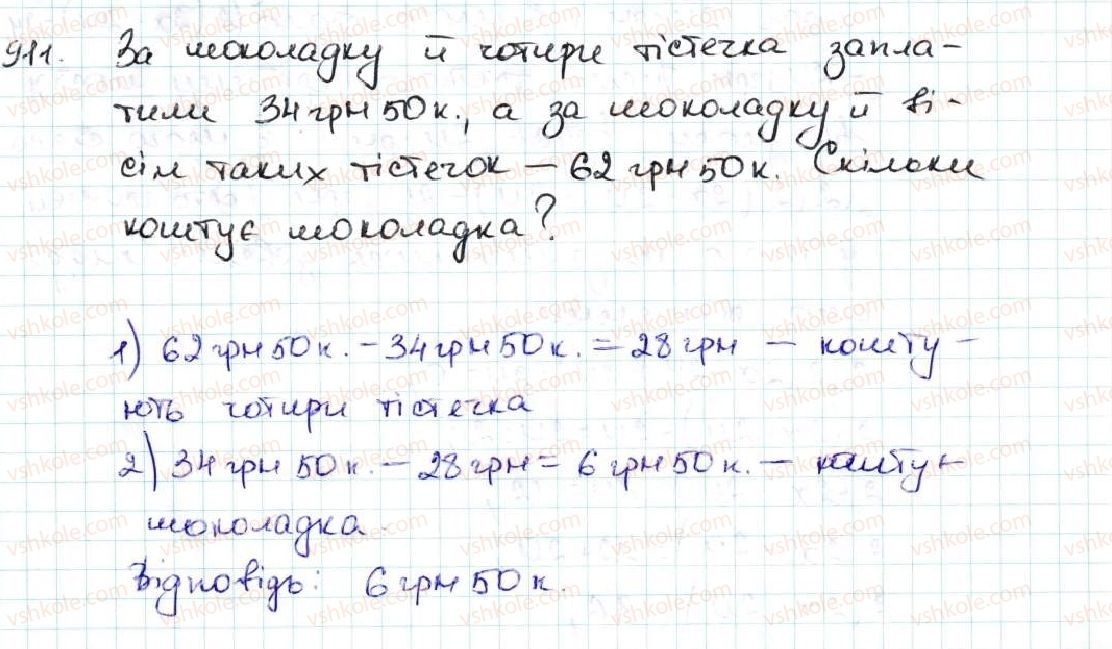 911. За шоколадку й чотири тістечка запла-
тили 34 грн 50 к., а за шоколадку й ві-
сім таких тістечок — 62 грн 50 к. Скільки
коштує шоколадка?
1) 62 грн 50 к. - 34 грн 50 к. = 28 грн — кошту-
ють чотири тістечка
2) 34 грн 50 к. - 28 грн = 6 грн 50 к. —
шоколадка
Відповідь: 6 грн 50 к.
vshkole.com